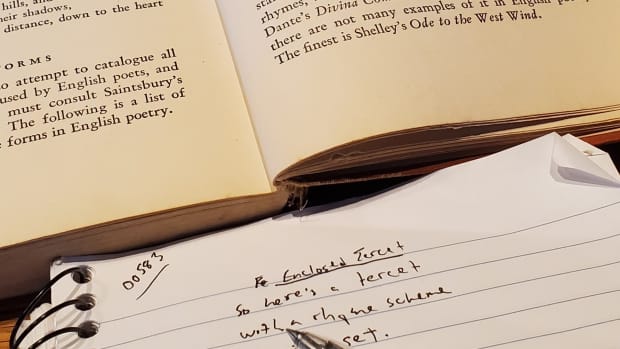 hills, and
their shadows,
distance, down to the heart
ORMS
o attempt to catalogue all
used by English poets, and
must consult Saintsbury's
The following is a list of
forms in English poetry.
rhymes,
Dante's Divina Co
there are not many examples of it in English
The finest is Shelley's Ode to the West Wind.
00583
Enclosed Tercet
So here's a tercet
with a rhyme scheme
set.